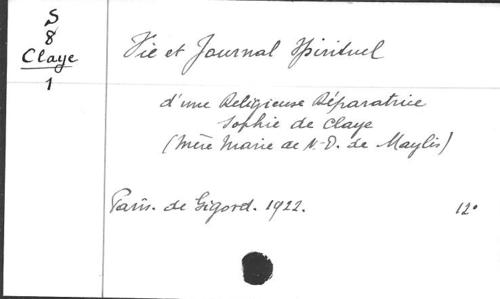 S
8
Claye
1
Vie et Journal Spirituel
d'une Religieuse Réparatrice
Sophie de Claye
(Mère Marie de N-D. de Maylis)
Paris. de Gigord. 1922. 12°